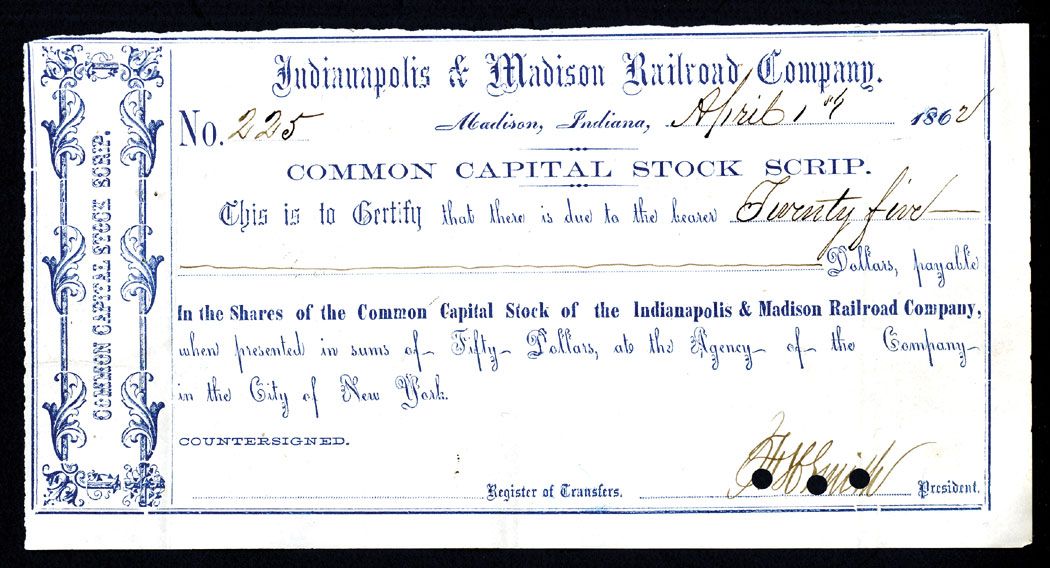 Indianapolis & Madison Railroad Company.
No. 225 Madison, Indiana, April 1st 1862
COMMON CAPITAL STOCK SCRIP.
This is to Certify that there is due to the bearer Twenty five
Dollars, payable
In the Shares of the Common Capital Stock of the Indianapolis & Madison Railroad Company,
when presented in sums of Fifty Dollars, at the Agency of the Company
in the City of New York.
COUNTERSIGNED.
Register of Transfers. Smith President.
COMMON CAPITAL STOCK SCRIP.